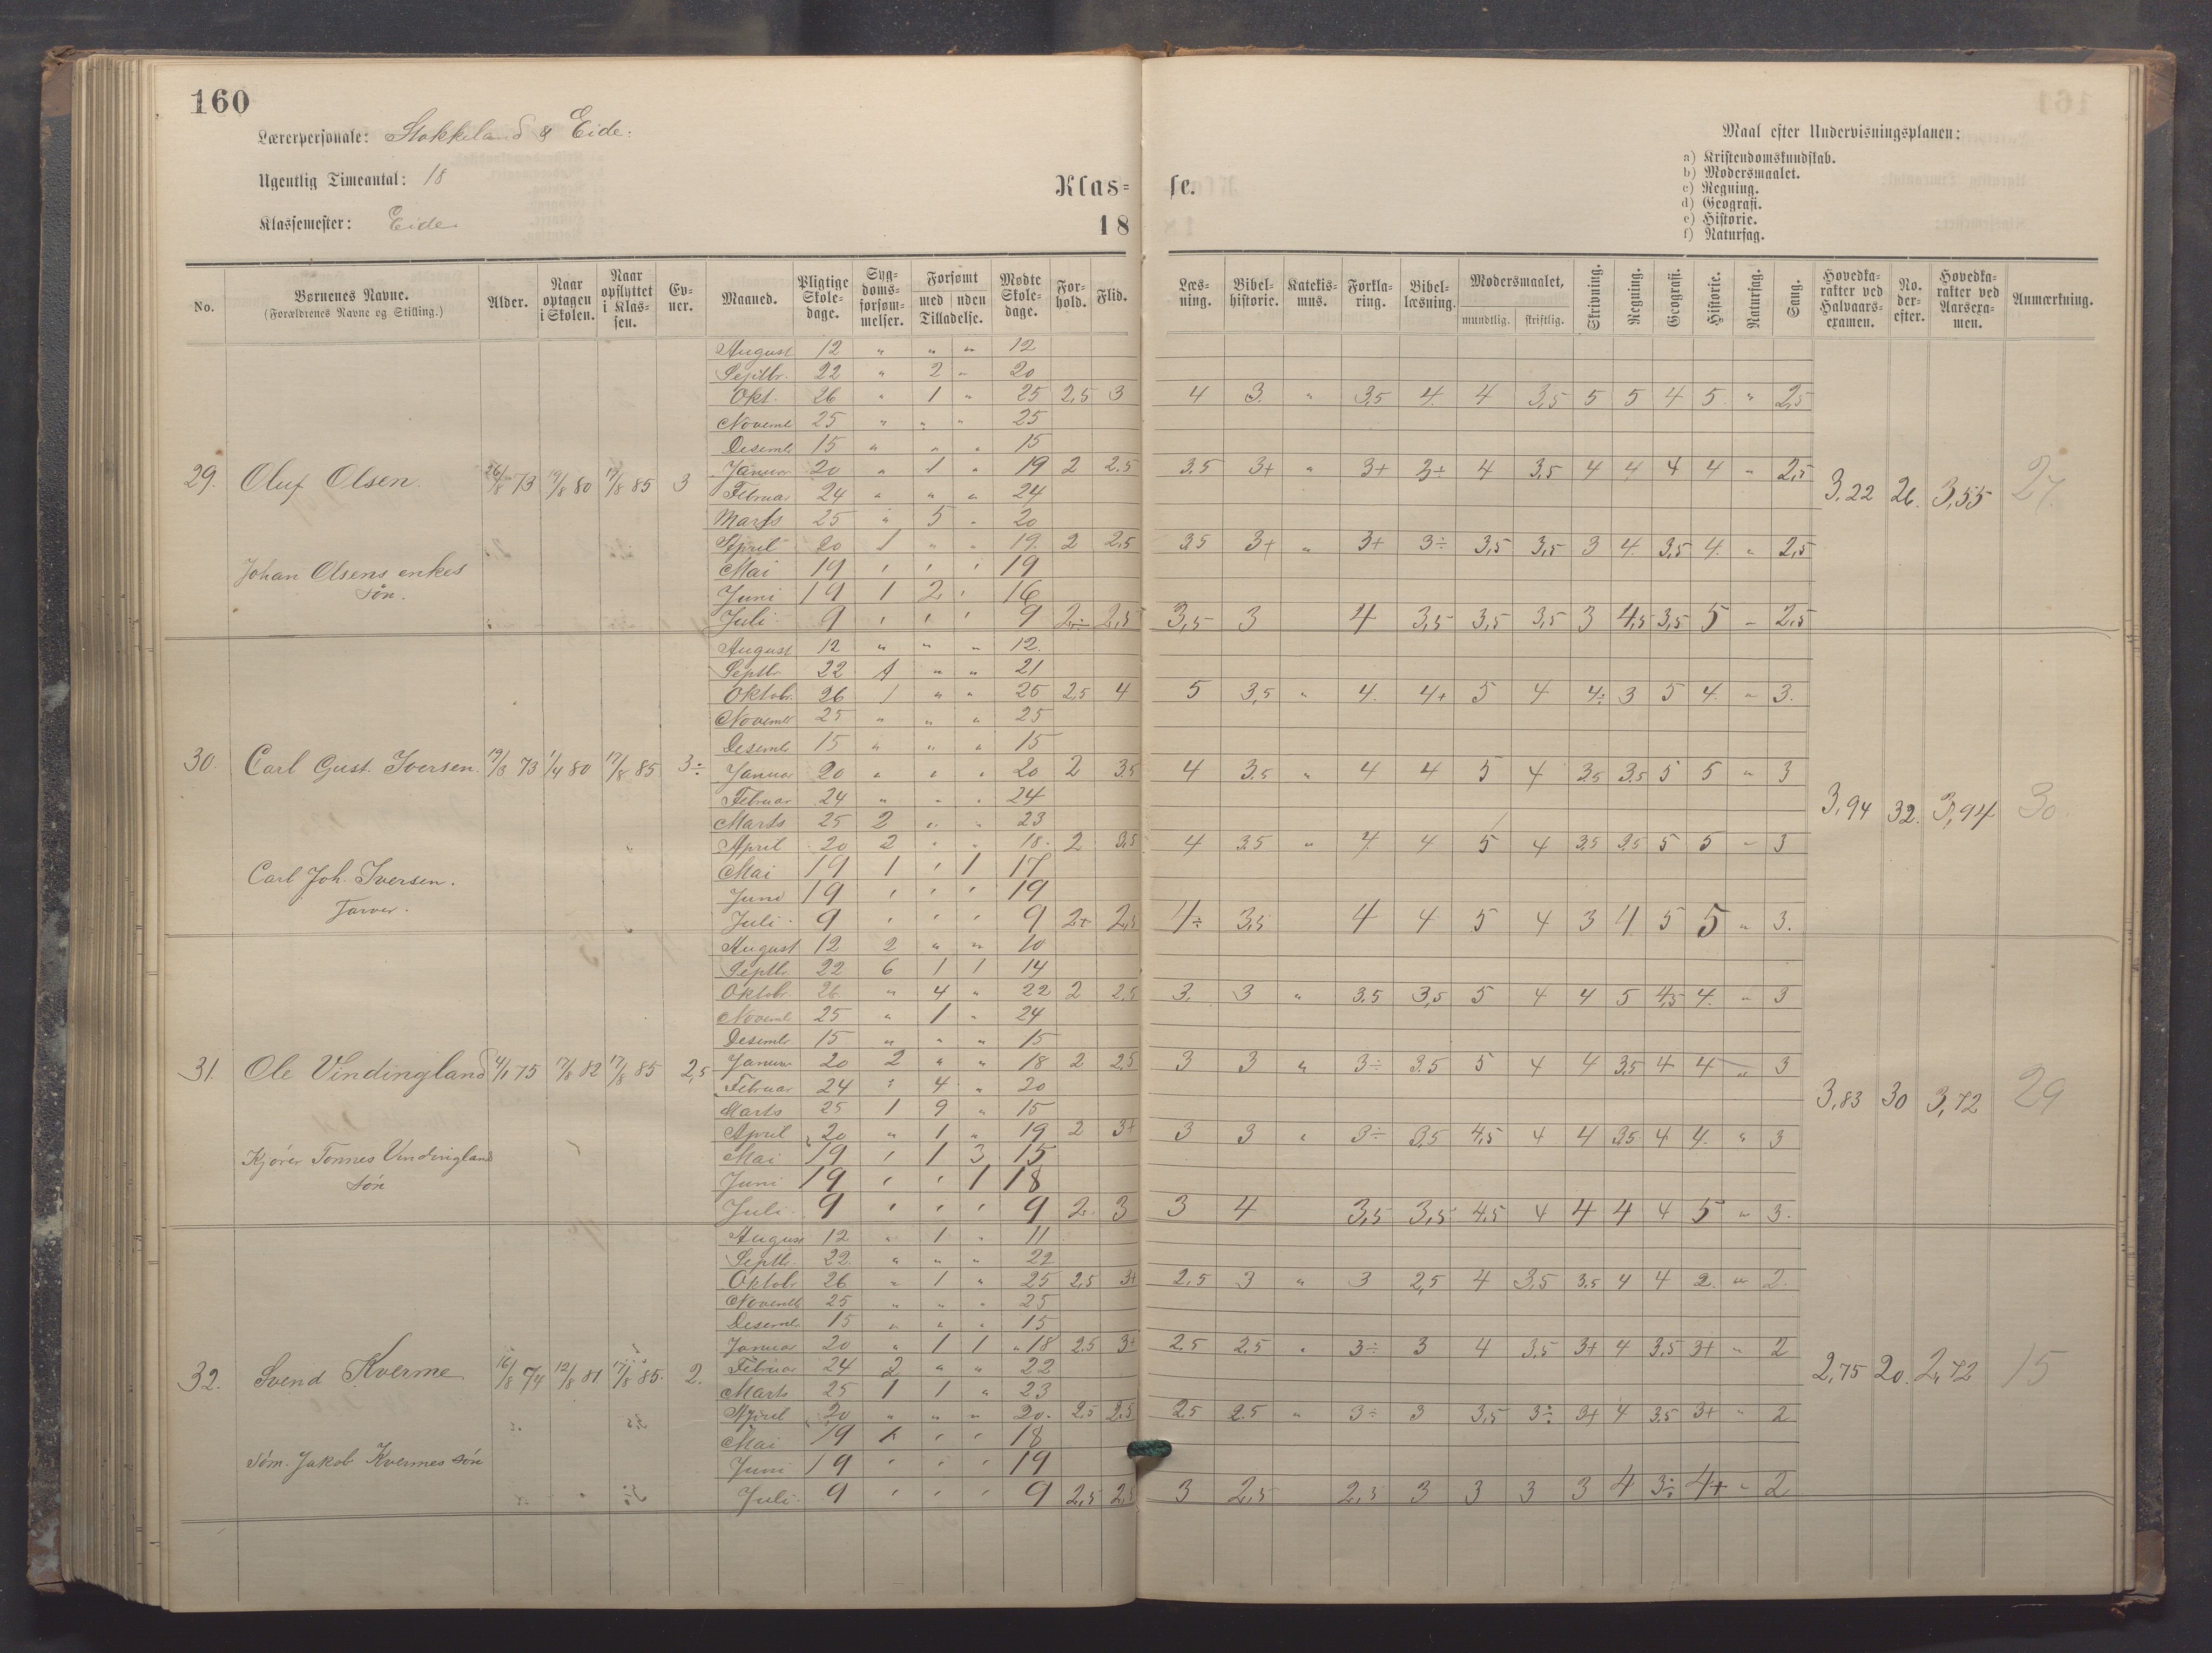 160
Lærerpersonale: Stokkeland & Eide.
Ugentlig Timeantal: 18
Klassemester: Eide
Klas= se.
18
Maal efter Undervisningsplanen:
a) Kristendomskundskab.
b) Modersmaalet.
c) Regning.
d) Geografi.
e) Historie.
f) Naturfag.
No. Børnenes Navne. (Forældrenes Navne og Stilling.) Alder. Naar optagen i Skolen. Naar opflyttet i Klassen. Evner. Maaned. Pligtige Skoledage. Sygdomsforsømmelser. Forsømt med uden Tilladelse. Mødte Skoledage. Forhold. Flid. Læsning. Bibelhistorie. Katekismus. Forklaring. Bibellæsning. Modersmaalet, mundtlig. skriftlig. Skrivning. Regning. Geografi. Historie. Naturfag. Sang. Hovedkarakter ved Halvaarsexamen. No. derefter. Hovedkarakter ved Aarsexamen. Anmærkning.
29. Oluf Olsen. 26/8 73 19/8 80 17/8 85 3
Johan Olsens enkes søn.
August 12 " " " 12
Septbr. 22 " 2 " 20
Okt. 26 " 1 " 25 2,5 3 4 3 " 3,5 4 4 3,5 5 5 4 5 " 2,5
Novemb 25 " " " 25
Desemb 15 " " " 15
Januar 20 " 1 " 19 2 2.5 3.5 3+ " 3+ 3÷ 4 3,5 4 4 4 4 " 2,5
Februar 24 " " " 24
Marts 25 " 5 " 20
April 20 1 " " 19 2 2,5 3,5 3+ " 3+ 3÷ 3,5 3,5 3 4 3,5 4 " 2,5
Mai 19 ' ' ' 19
Juni 19 1 2 ' 16
Juli 9 ' ' ' 9 2÷ 2,5 3,5 3 4 3,5 3,5 3,5 3 4,5 3,5 5 " 2,5
3,22 26. 3,55 27.
30. Carl Gust. Iversen. 19/3 73 1/4 80 17/8 85 3÷
Carl Joh. Iversen.
Farver.
August 12 " " " 12.
Septbr 22 1 " " 21
Oktobr. 26 1 " " 25 2,5 4 5 3,5 " 4 4+ 5 4 4÷ 3 5 4 " 3.
Novemb 25 " " " 25
Desemb 15 " " " 15
Januar 20 " " " 20 2 3.5 4 3.5 " 4 4 5 4 3,5 3,5 5 5 " 3
Februar 24 " " " 24
Marts 25 2 " " 23
April 20 2 " " 18 2 3,5 4 3.5 " 4 4 5 4 3,5 3,5 5 5 " 3
Mai 19 1 ' 1 17
Juni 19 ' ' ' 19
Juli 9 ' ' ' 9 2+ 2,5 4÷ 3,5 4 4 5 4 3 4 5 5 " 3.
3,94 32. 3,94 30.
31. Ole Vindingland 4/1 75 17/8 82 17/8 85 2,5
Kjører Tønnes Vindinglands søn
August 12 2 " " 10
Septbr. 22 6 1 1 14
Oktobr. 26 " 4 " 22 2 2,5 3. 3 " 3.5 3,5 5 4 4 5 4,5 4 " 3
Novemb 25 " 1 " 24
Desemb. 15 " " " 15
Januar 20 2 " " 18 2 2,5 3 3 " 3÷ 3.5 5 4 4 3,5 4 4 " 3
Februar 24 " 4 " 20
Marts 25 1 9 " 15
April 20 " 1 " 19 2 3+ 3 3 " 3÷ 3,5 4,5 4 4 3,5 4 4 " 3
Mai 19 ' 1 3 15
Juni 19 ' ' 1 18
Juli 9 ' ' ' 9 2. 3 3 4 3,5 3,5 4,5 4 4 4 4 5 " 3.
3,83 30 3,72 29
32. Svend Kverme 16/8 74 12/8 81 17/8 85. 2.
Søm. Jakob Kvermes søn
August 12 " 1 " 11
Septbr. 22 " " " 22
Oktobr 26 " 1 " 25 2,5 3+ 2,5 3 " 3 2,5 4 3,5 3,5 4 4 2 " 2.
Novemb 25 " " " 25
Desemb. 15 " " " 15
Januar 20 " 1 1 18 2,5 3+ 2.5 2,5 " 3÷ 3 4 3,5 3+ 4 3,5 3+ " 2
Februar 24 2 " " 22
Marts 25 1 1 " 23
April 20 " " " 20. 2,5 2,5 2.5 2.5 " 3÷ 3 3,5 3÷ 3+ 4 3,5 3+ " 2
Mai 19 1 ' ' 18
Juni 19 ' ' ' 19
Juli 9 ' ' ' 9 2,5 2,5 3 2,5 2,5 3 3 3 3 4 3÷ 4+ " 2
2,75 20. 2,72 15